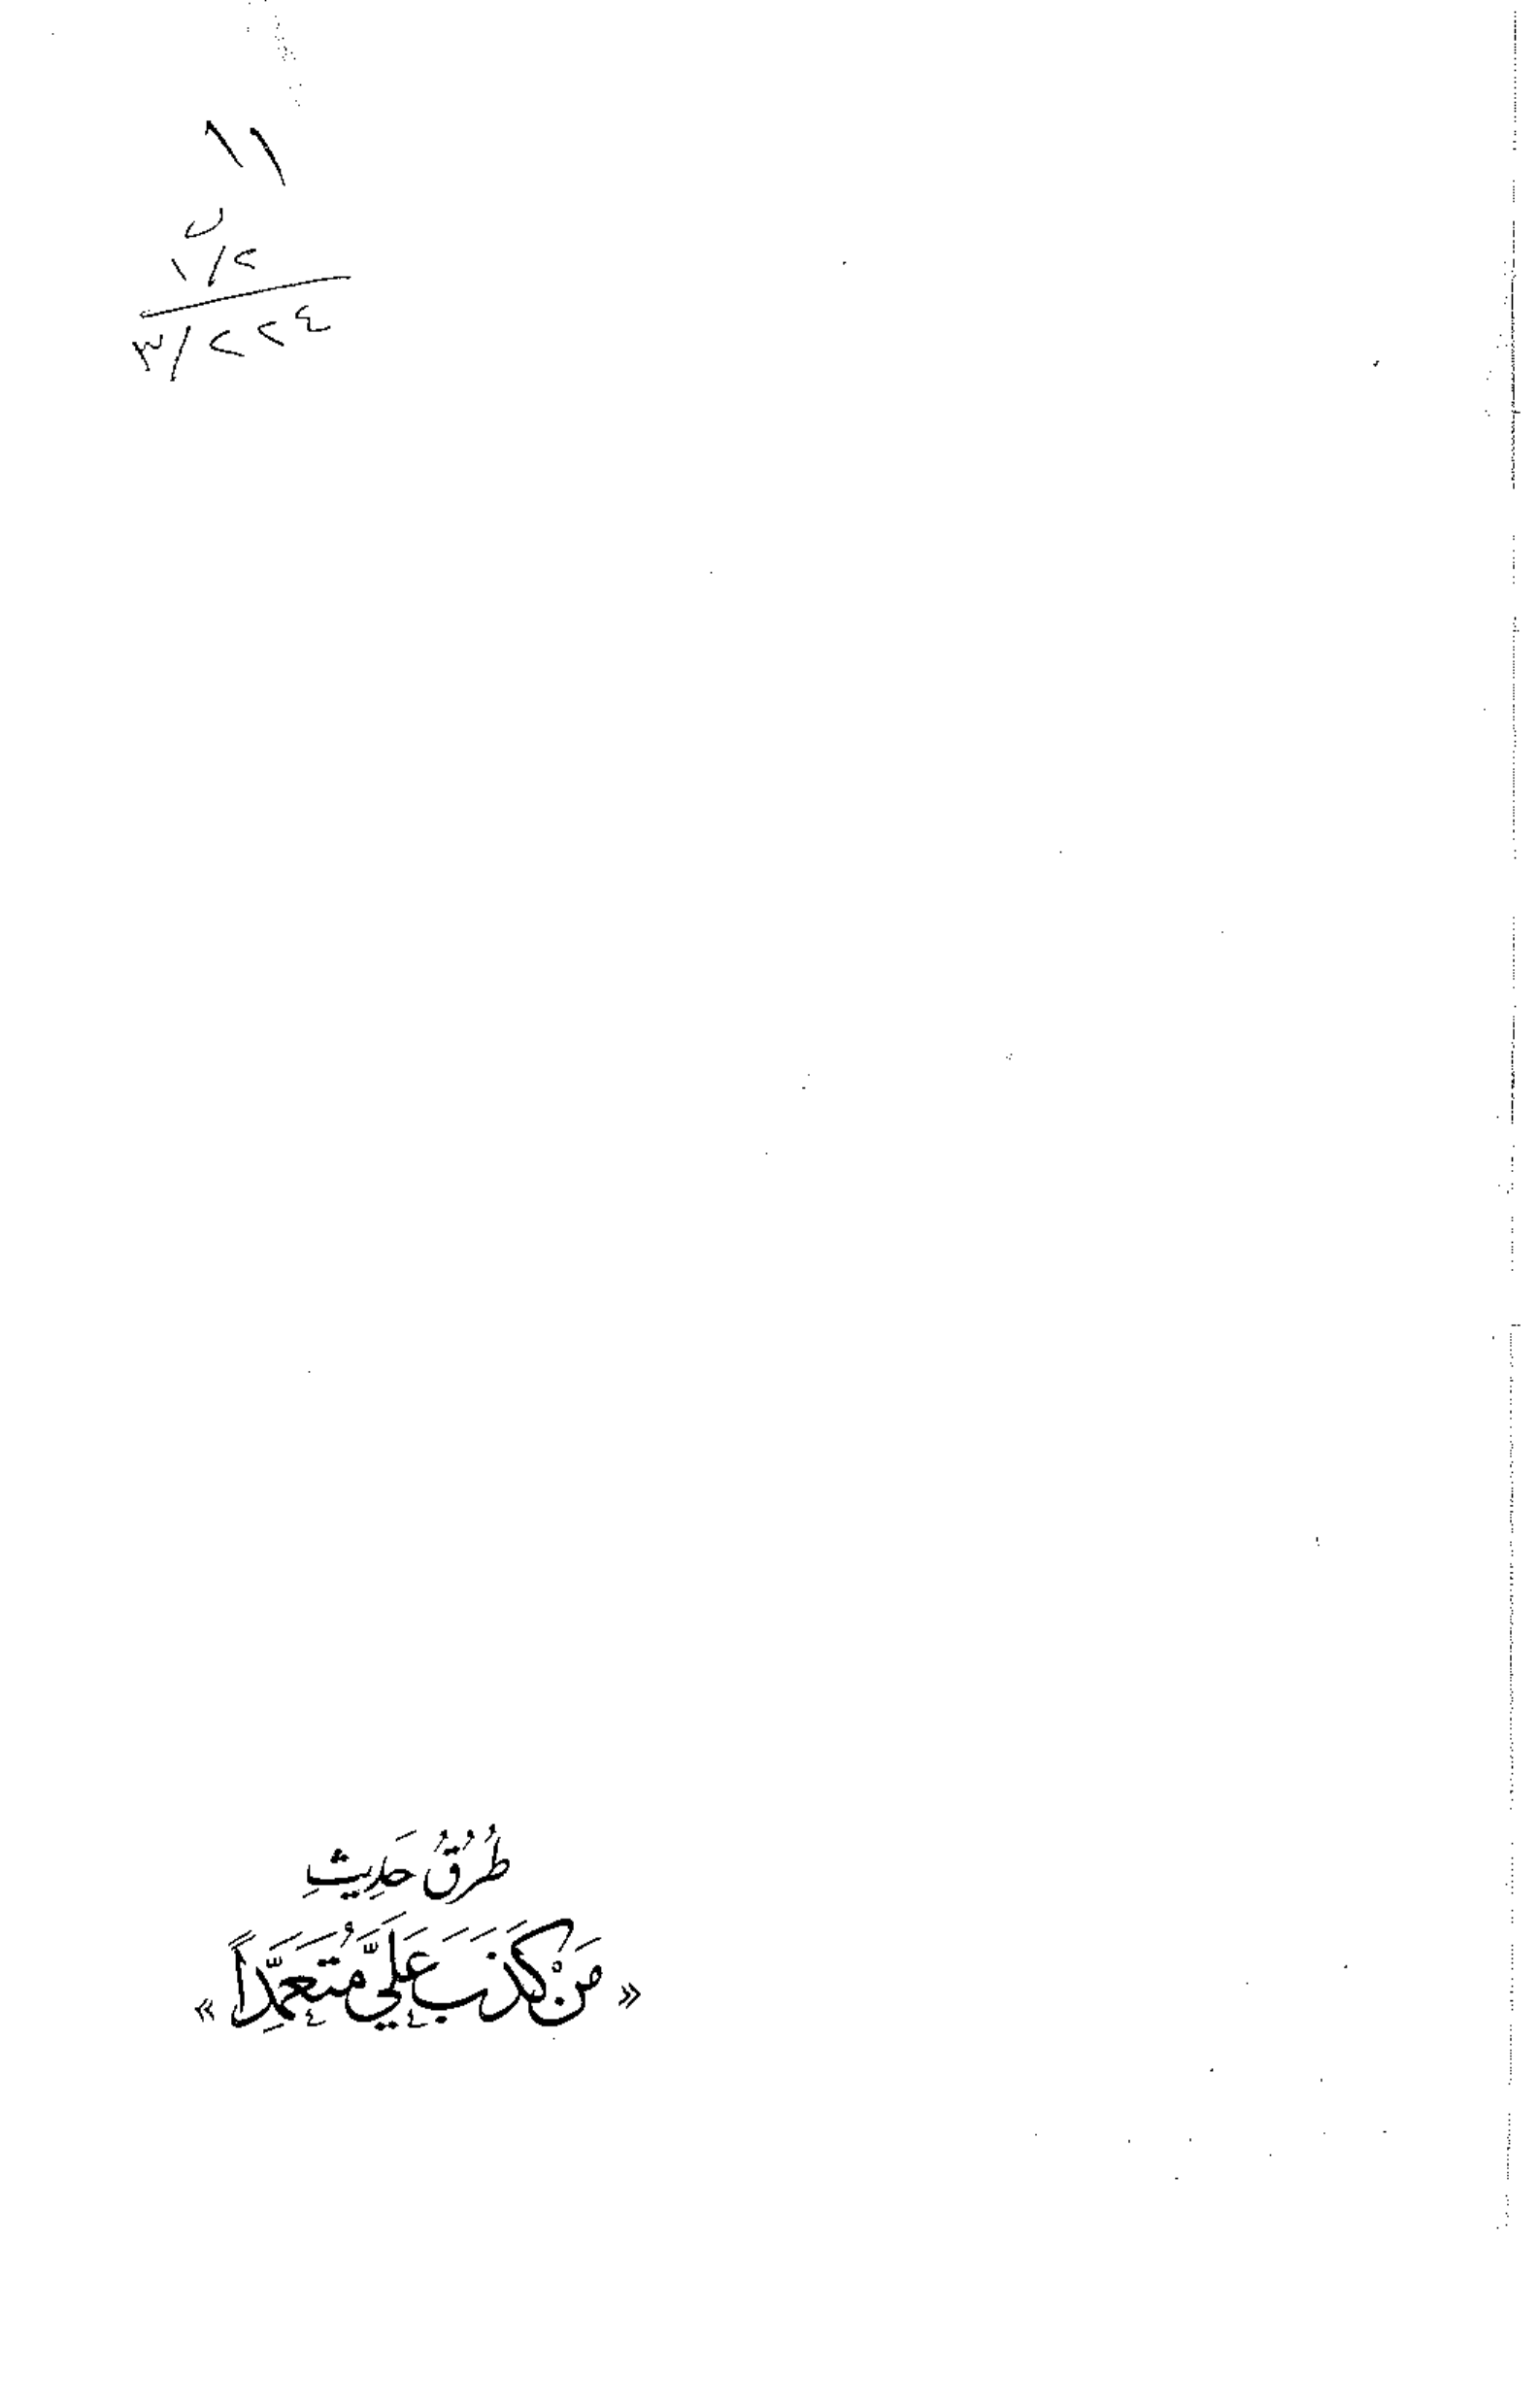 ١١
١/٢
٣/٢٢٤
طُرُقُ حَدِيثِ
«مَنْ كَذَبَ عَلَيَّ مُتَعَمِّداً»